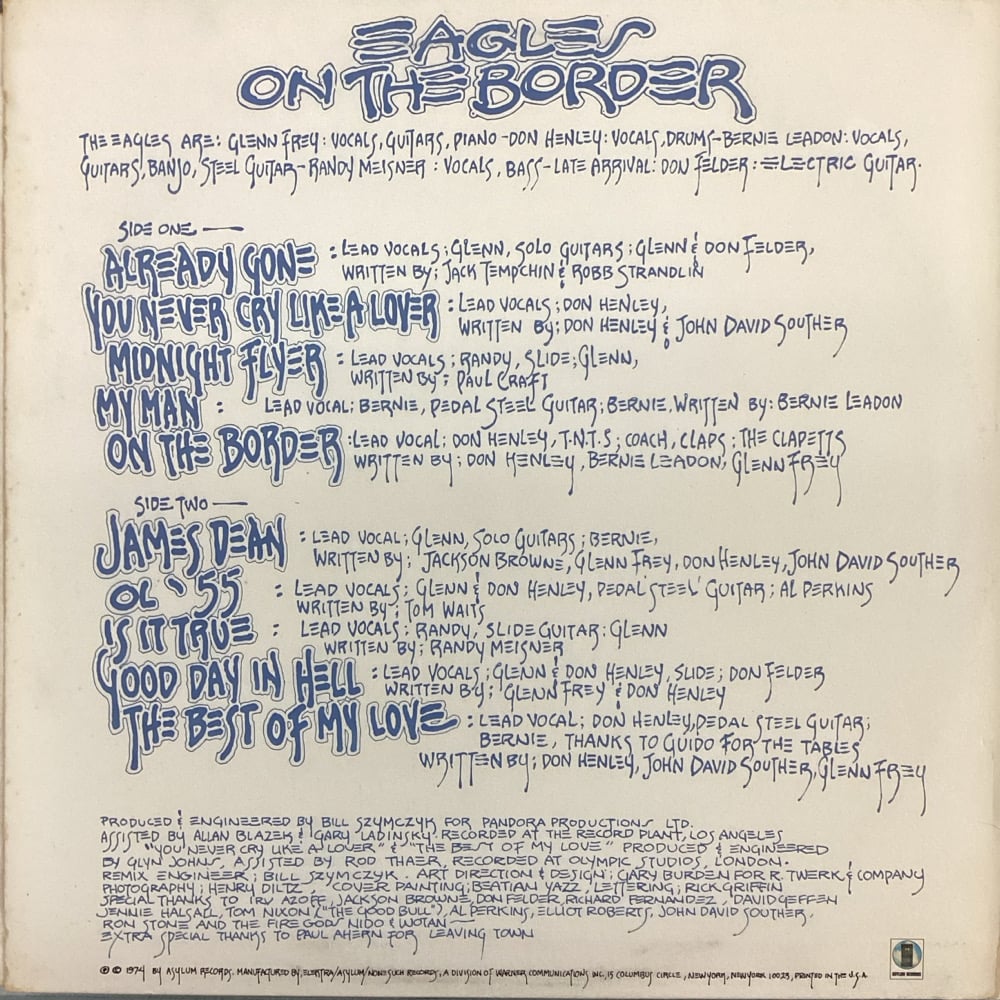 EAGLES
ON THE BORDER
THE EAGLES ARE: GLENN FREY: VOCALS, GUITARS, PIANO - DON HENLEY: VOCALS, DRUMS - BERNIE LEADON: VOCALS,
GUITARS, BANJO, STEEL GUITAR - RANDY MEISNER: VOCALS, BASS - LATE ARRIVAL: DON FELDER: ELECTRIC GUITAR.
SIDE ONE —
ALREADY GONE : LEAD VOCALS; GLENN, SOLO GUITARS; GLENN & DON FELDER,
WRITTEN BY; JACK TEMPCHIN & ROBB STRANDLIN
YOU NEVER CRY LIKE A LOVER : LEAD VOCALS; DON HENLEY,
WRITTEN BY: DON HENLEY & JOHN DAVID SOUTHER
MIDNIGHT FLYER : LEAD VOCALS; RANDY, SLIDE; GLENN,
WRITTEN BY; PAUL CRAFT
MY MAN : LEAD VOCAL; BERNIE, PEDAL STEEL GUITAR; BERNIE, WRITTEN BY: BERNIE LEADON
ON THE BORDER : LEAD VOCAL; DON HENLEY, T.N.T.S; COACH, CLAPS; THE CLAPETTS
WRITTEN BY; DON HENLEY, BERNIE LEADON, GLENN FREY
SIDE TWO —
JAMES DEAN : LEAD VOCAL; GLENN, SOLO GUITARS; BERNIE,
WRITTEN BY; JACKSON BROWNE, GLENN FREY, DON HENLEY, JOHN DAVID SOUTHER
OL '55 : LEAD VOCALS; GLENN & DON HENLEY, PEDAL STEEL GUITAR; AL PERKINS
WRITTEN BY; TOM WAITS
IS IT TRUE : LEAD VOCALS; RANDY, SLIDE GUITAR: GLENN
WRITTEN BY; RANDY MEISNER
GOOD DAY IN HELL : LEAD VOCALS; GLENN & DON HENLEY, SLIDE; DON FELDER
WRITTEN BY; GLENN FREY & DON HENLEY
THE BEST OF MY LOVE : LEAD VOCAL; DON HENLEY, PEDAL STEEL GUITAR;
BERNIE, THANKS TO GUIDO FOR THE TABLES
WRITTEN BY; DON HENLEY, JOHN DAVID SOUTHER, GLENN FREY
PRODUCED & ENGINEERED BY BILL SZYMCZYK FOR PANDORA PRODUCTIONS LTD.
ASSISTED BY ALLAN BLAZEK & GARY LADINSKY. RECORDED AT THE RECORD PLANT, LOS ANGELES
"YOU NEVER CRY LIKE A LOVER" & "THE BEST OF MY LOVE" PRODUCED & ENGINEERED
BY GLYN JOHNS, ASSISTED BY ROD THAER, RECORDED AT OLYMPIC STUDIOS, LONDON.
REMIX ENGINEER; BILL SZYMCZYK. ART DIRECTION & DESIGN; GARY BURDEN FOR R. TWERK & COMPANY
PHOTOGRAPHY; HENRY DILTZ, COVER PAINTING; BEATIAN YAZZ, LETTERING; RICK GRIFFIN
SPECIAL THANKS TO IRV AZOFF, JACKSON BROWNE, DON FELDER, RICHARD FERNANDEZ, DAVID GEFFEN
JENNIE HALSALL, TOM NIXON ("THE GOOD BULL"), AL PERKINS, ELLIOT ROBERTS, JOHN DAVID SOUTHER,
RON STONE AND THE FIRE GODS NIDO & WOTAN —
EXTRA SPECIAL THANKS TO PAUL AHERN FOR LEAVING TOWN
℗ © 1974 BY ASYLUM RECORDS. MANUFACTURED BY ELEKTRA/ASYLUM/NONESUCH RECORDS, A DIVISION OF WARNER COMMUNICATIONS INC, 15 COLUMBUS CIRCLE, NEW YORK, NEW YORK 10023, PRINTED IN THE U.S.A.
ASYLUM RECORDS